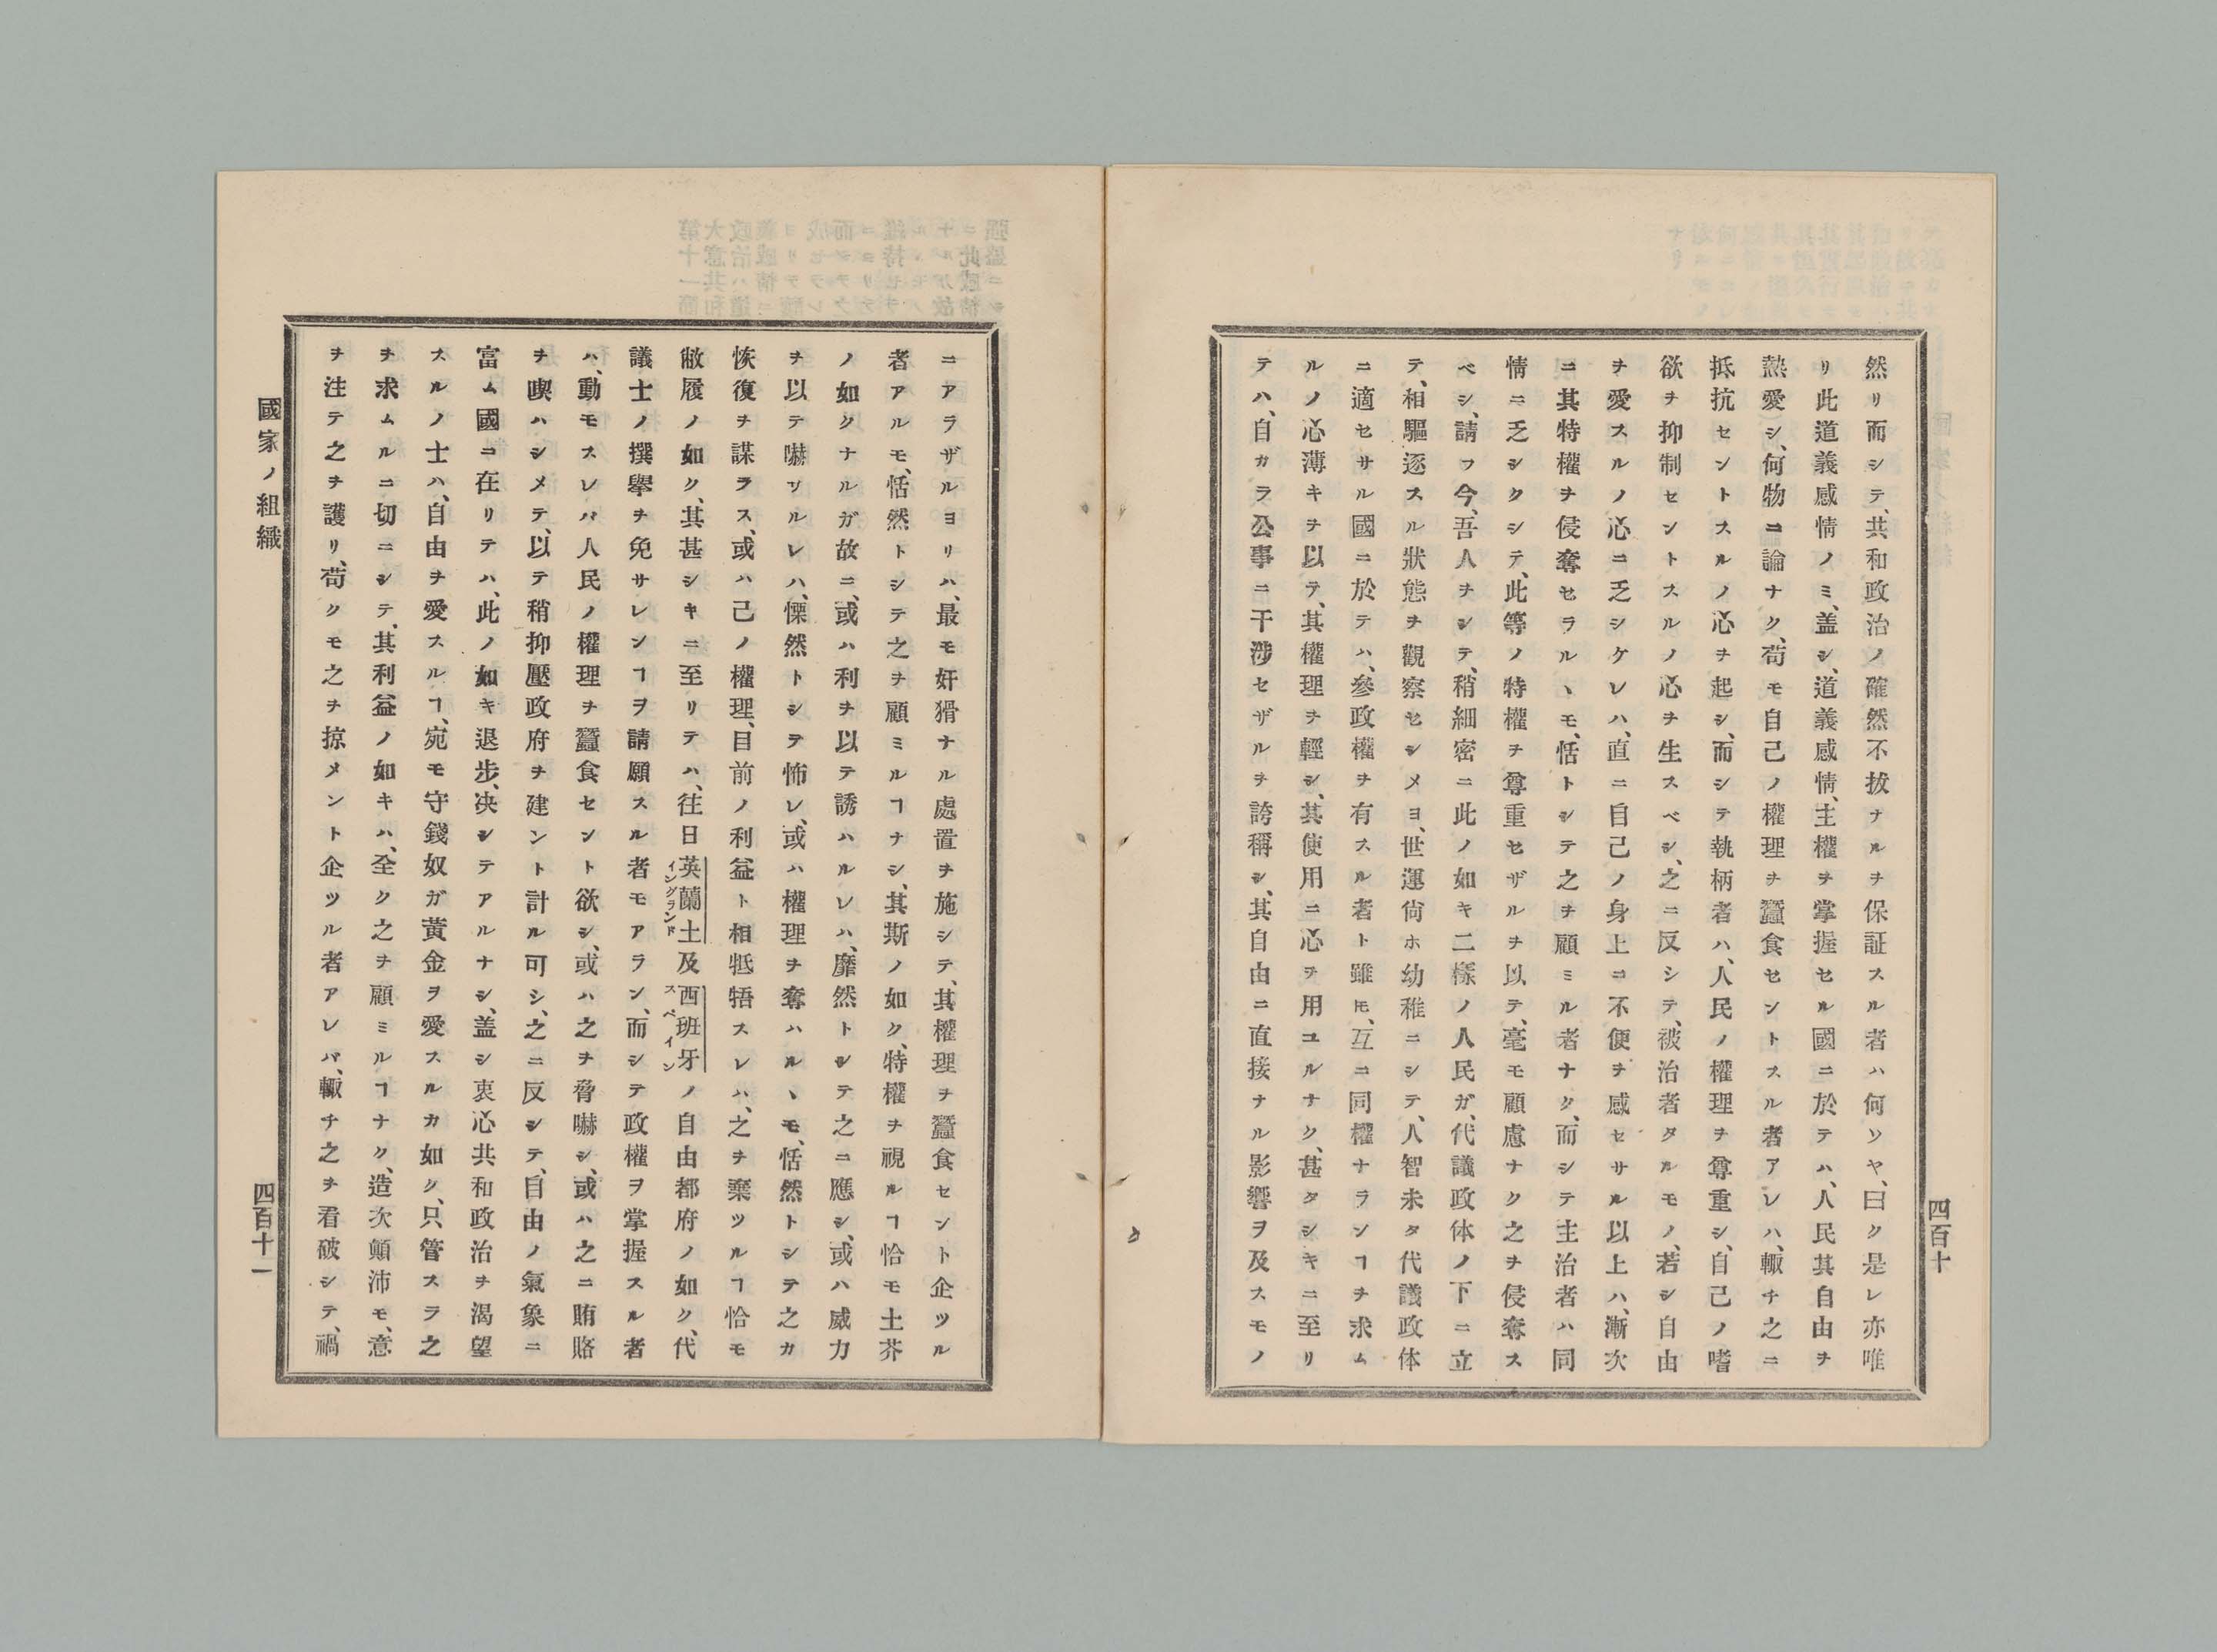 然リ而シテ、共和政治ノ確然不拔ナルヲ保証スル者ハ何ソヤ、曰ク是レ亦唯
リ此道義感情ノミ、盖シ、道義感情、主權ヲ掌握セル國ニ於テハ、人民其自由ヲ
熱愛シ、何物ニ論ナク、苟モ自己ノ權理ヲ蠶食セントスル者アレハ、輙チ之ニ
抵抗セントスルノ心ヲ起シ、而シテ執柄者ハ、人民ノ權理ヲ尊重シ、自己ノ嗜
欲ヲ抑制セントスルノ心ヲ生スベシ、之ニ反シテ、被治者タルモノ、若シ自由
ヲ愛スルノ心ニ乏シケレハ、直ニ自己ノ身上ニ不便ヲ感セサル以上ハ、漸次
ニ其特權ヲ侵奪セラルヽモ、恬トシテ之ヲ顧ミル者ナク、而シテ主治者ハ同
情ニ乏シクシテ、此等ノ特權ヲ尊重セザルヲ以テ、毫モ顧慮ナク之ヲ侵奪ス
ベシ、請フ今、吾人ヲシテ、稍細密ニ此ノ如キ二樣ノ人民ガ、代議政体ノ下ニ立
テ、相驅逐スル狀態ヲ觀察セシメヨ、世運尙ホ幼稚ニシテ、人智未タ代議政体
ニ適セサル國ニ於テハ、參政權ヲ有スル者ト雖モ、互ニ同權ナランヿヲ求ム
ルノ心薄キヲ以テ、其權理ヲ輕シ、其使用ニ心ヲ用ユルナク、甚タシキニ至リ
テハ、自カラ公事ニ干涉セザルヲ誇稱シ、其自由ニ直接ナル影響ヲ及スモノ
四百十
ニアラザルヨリハ、最モ奸猾ナル處置ヲ施シテ、其權理ヲ蠶食セント企ツル
者アルモ、恬然トシテ之ヲ顧ミルヿナシ、其斯ノ如ク、特權ヲ視ルヿ恰モ土芥
ノ如クナルガ故ニ、或ハ利ヲ以テ誘ハルレハ、靡然トシテ之ニ應シ、或ハ威力
ヲ以テ嚇ソルレハ、慄然トシテ怖レ、或ハ權理ヲ奪ハルヽモ、恬然トシテ之カ
恢復ヲ謀ラス、或ハ己ノ權理、目前ノ利益ト相牴牾スレハ、之ヲ棄ツルヿ恰モ
敝履ノ如ク、其甚シキニ至リテハ、往日英蘭土及西班牙ノ自由都府ノ如ク、代
イングランド
スペイン
議士ノ撰擧ヲ免サレンヿヲ請願スル者モアラン、而シテ政權ヲ掌握スル者
ハ、動モスレバ人民ノ權理ヲ蠶食セント欲シ、或ハ之ヲ脅嚇シ、或ハ之ニ賄賂
ヲ喫ハシメテ、以テ稍抑壓政府ヲ建ント計ル可シ、之ニ反シテ、自由ノ氣象ニ
富ム國ニ在リテハ、此ノ如キ退步、决シテアルナシ、盖シ衷心共和政治ヲ渴望
スルノ士ハ、自由ヲ愛スルヿ、宛モ守錢奴ガ黃金ヲ愛スルカ如ク、只管スラ之
ヲ求ムルニ切ニシテ、其利益ノ如キハ、全ク之ヲ顧ミルヿナク、造次顛沛モ、意
ヲ注テ之ヲ護リ、苟クモ之ヲ掠メント企ツル者アレバ、輙チ之ヲ看破シテ、禍
國家ノ組織
四百十一